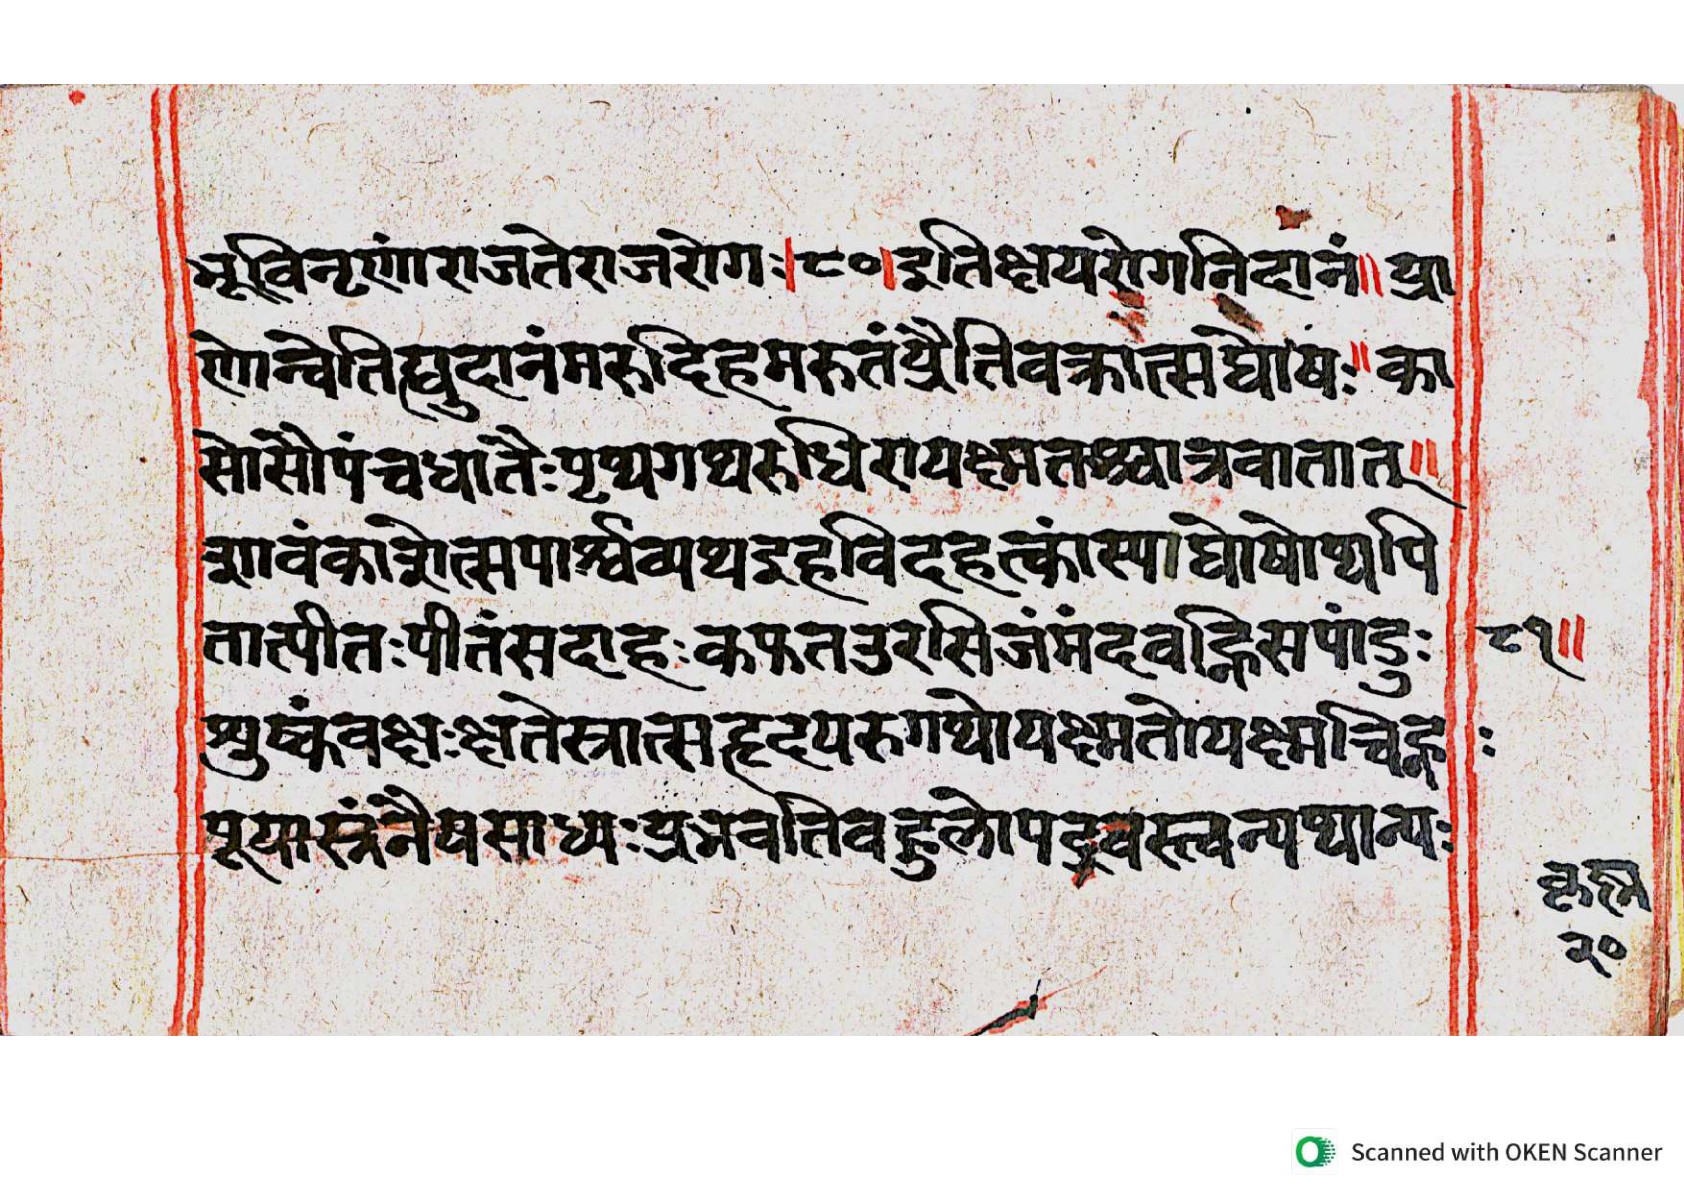 भूविनृणां राजतेराजरोगः।८०।इतिक्षयरोगनिदानं॥ प्रा
णोन्वेतिह्युदानंमरुदिहमरुतंप्रैतिवक्रात्सघोषः॥ का
सोसौपंचधातैःपृथ्यगथ्यरुधिरायक्ष्मतश्चात्रवातात्॥
शावंकाशोत्सपार्श्वव्यथइहविदहत्कांस्याघोषोथ्यपि
तात्पीतःपीतंसदाहःकफतउरसिजंमंदवह्निसपांडुः ८१॥
शुष्कंवक्षःक्षतेस्त्रात्सहृदयरुगथोयक्ष्मतोयक्ष्मचिह्नः
पूयास्त्रंनैयसाध्यःप्रभवतिवहुलोपद्रवस्त्वन्यथान्यः
२०
Scanned with OKEN Scanner